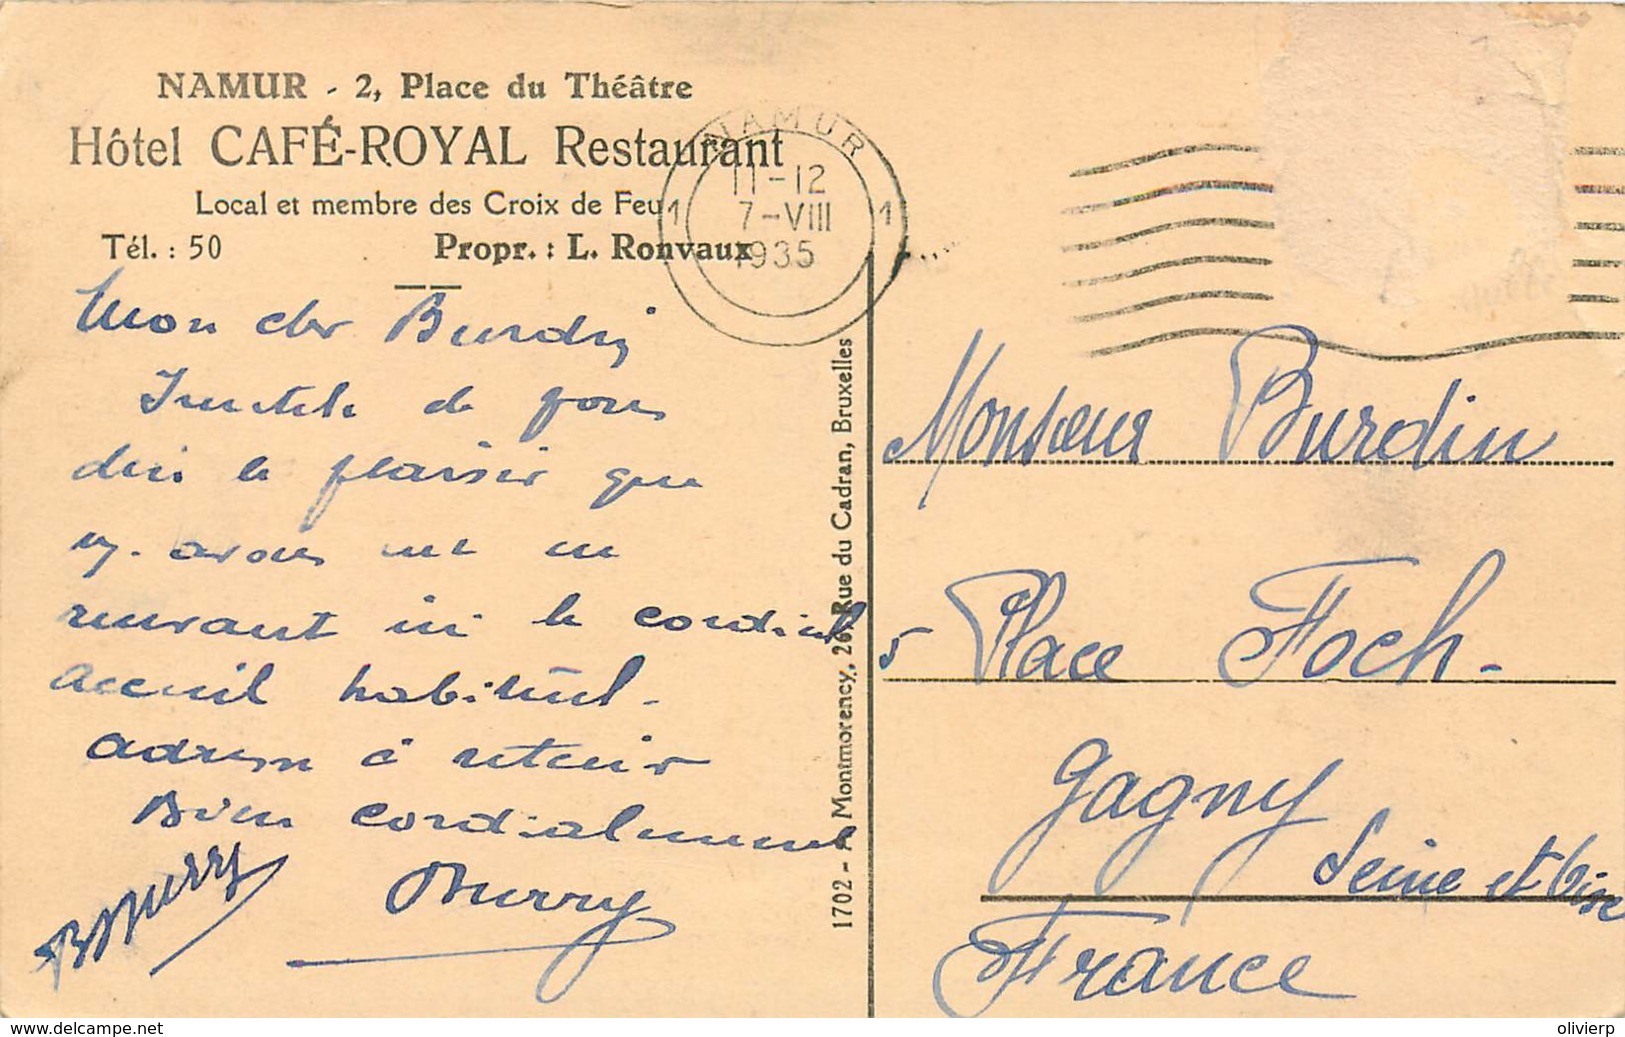 NAMUR - 2, Place du Théâtre
Hôtel CAFÉ-ROYAL Restaurant
Local et membre des Croix de Feu
Tél. : 50 Propr. : L. Ronvaux
NAMUR
1 1
11-12
7-VIII
1935
Mon cher Burdin
Inutile de vous
dire le plaisir que
n. avons eu en
recevant ici le cordial
accueil habituel -
adresse à retenir
Bien cordialement
1702 - A Montmorency, 26 Rue du Cadran, Bruxelles
Monsieur Burdin
5 Place Foch -
Gagny
Seine et Oise
France
www.delcampe.net
olivierp